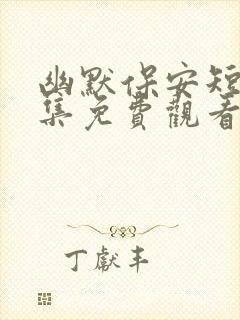 幽默保安短
集免費觀看
丁獻丰